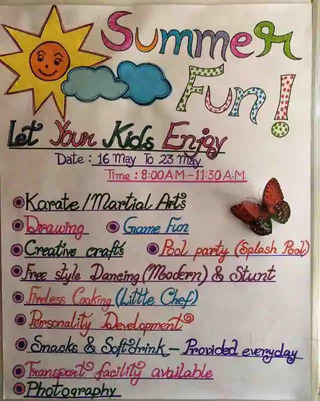 Summer
Fun!
Let Your Kids Enjoy
Date : 16 May To 23 May
Time : 8:00 A.M - 11:30 A.M.
Karate / Martial Arts
Drawing Game Fun
Creative crafts Pool party (Splash Pool)
Free style Dancing (Moodern) & Stunt
Fireless Cooking (Little Chef)
Personality Development
Snacks & Softdrink - Provided everyday
Transport facility available
Photography